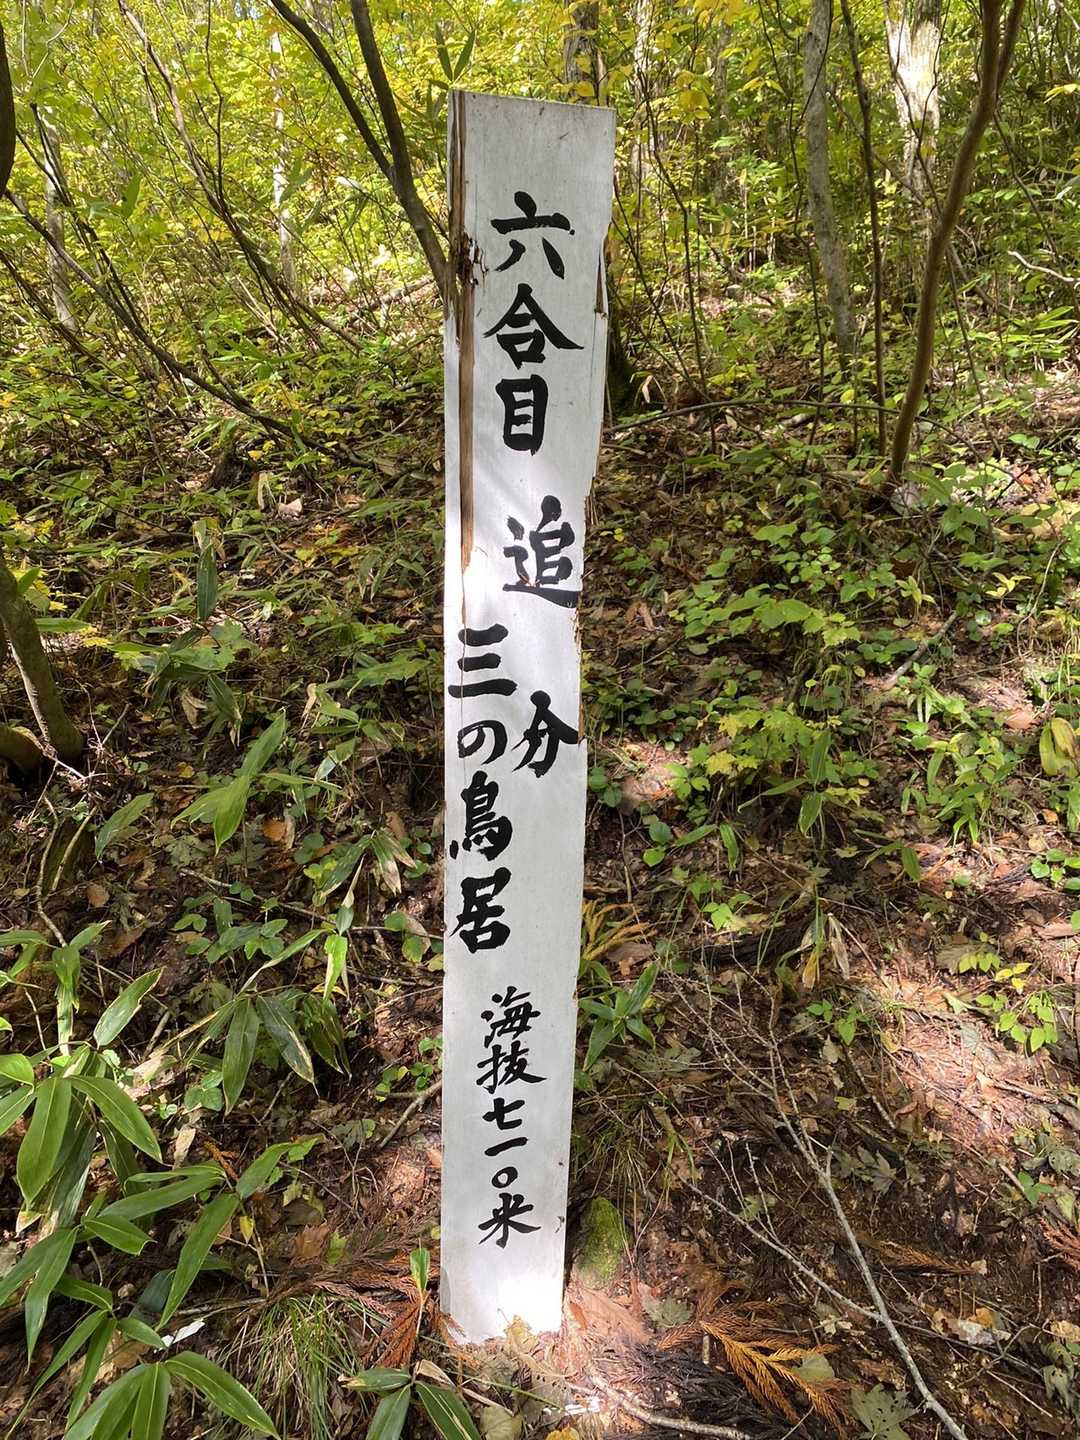 六合目
追分
三の鳥居
海抜七一〇米